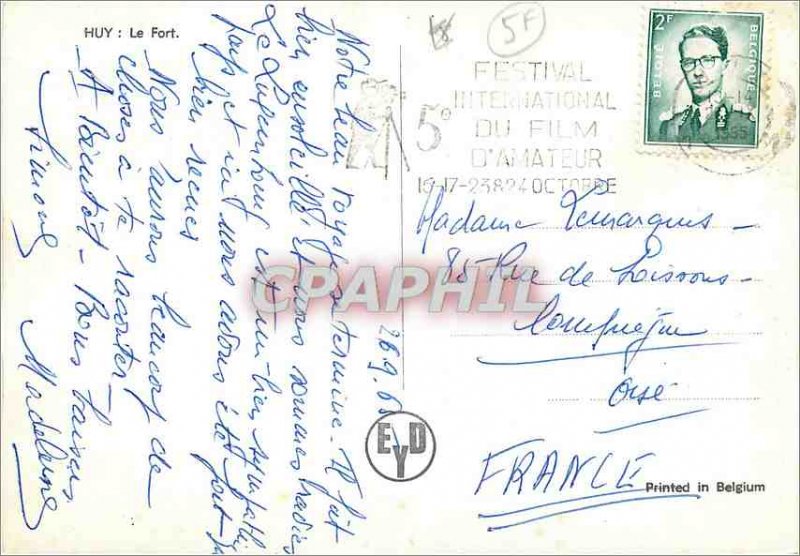 HUY : Le Fort.
5F
Notre beau voyage se termine. Il fait
bien ensoleillé et nous sommes
Le Luxembourg est un bien sympathique
pays et nous avons été fort
bien reçues
Nous aurons beaucoup de
choses à te raconter
A bientôt - Bons baisers
Simone Madeleine
26.9.65
EYD
5e
FESTIVAL
INTERNATIONAL
DU FILM
D'AMATEUR
16-17-23&24 OCTOBRE
2F
BELGIË
BELGIQUE
Madame Lemarquis -
85 Rue de Soissons -
Compiègne
Oise
FRANCE
Printed in Belgium
CPAPHIL